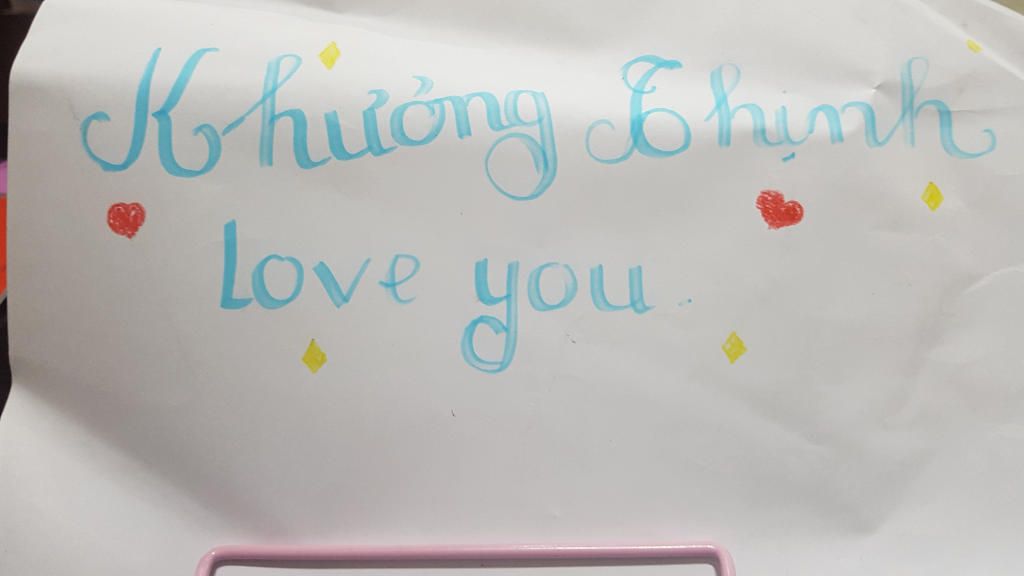 Khưởng Thịnh
Love you.